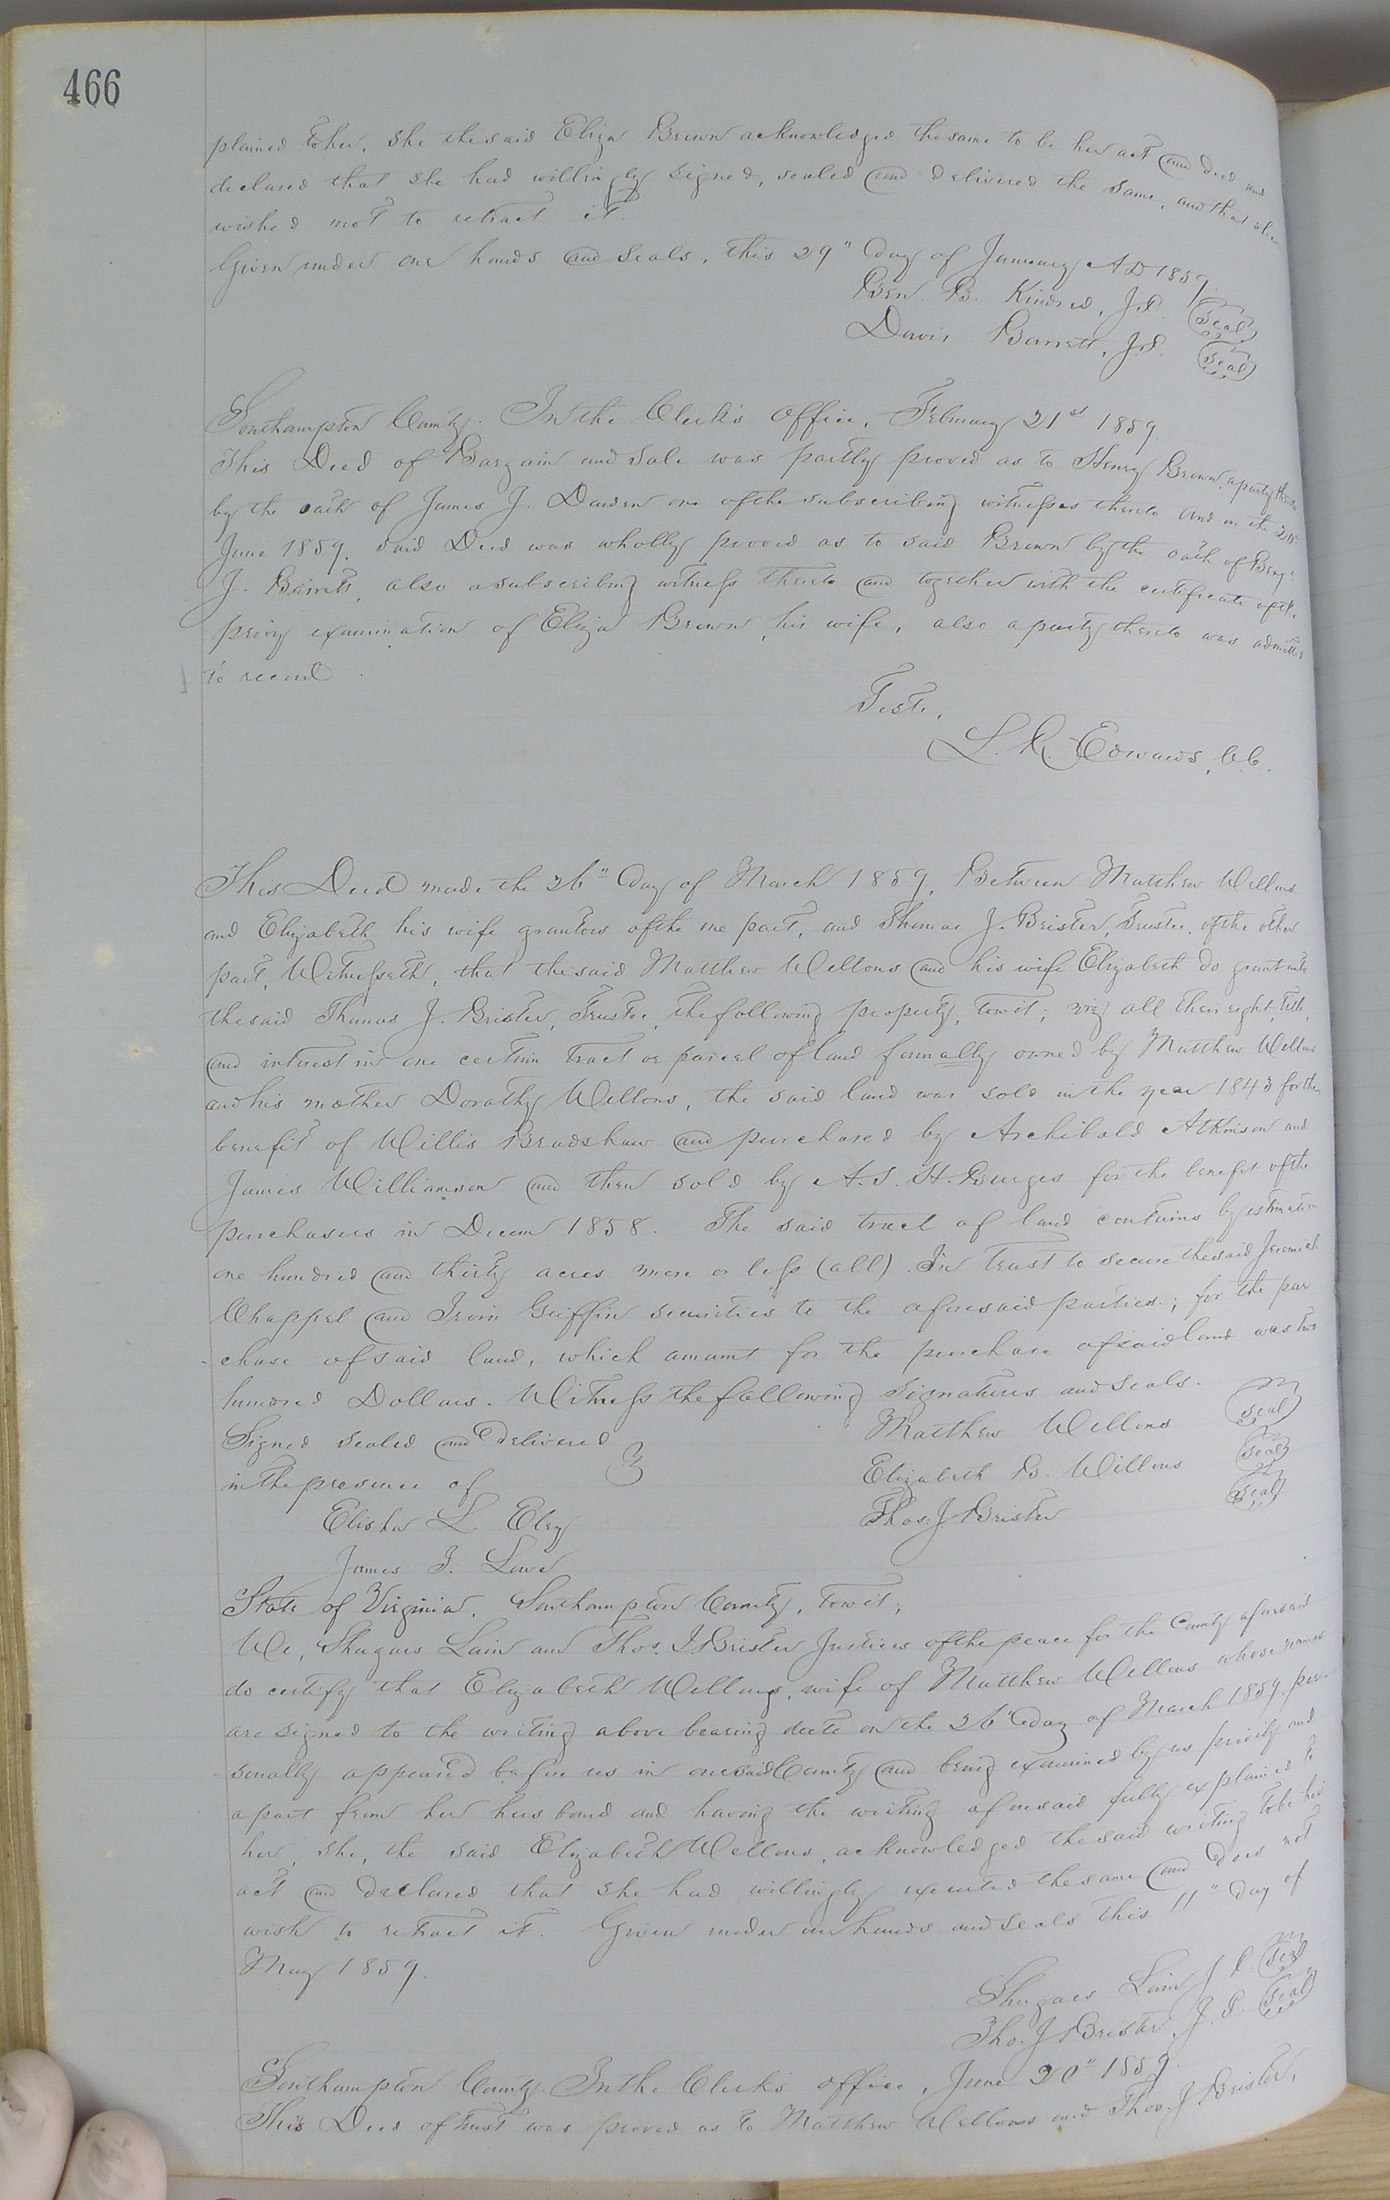 466
plained to her, she the said Eliza Brown acknowledged the same to be her act and deed and
declared that she had willingly signed, sealed and delivered the same, and that she
wished not to retract it.
Given under our hands and seals, this 29" day of January AD 1859
Ben. B. Kindred, J.P. Seal
Davis Barrett, J.P. Seal
Southampton County. In the Clerk's Office, February 21st 1859
This Deed of Bargain and Sale was partly proved as to Henry Brown, a party thereto
by the oath of James J. Darden one of the subscribing witnesses thereto and on the 20"
June 1859. said Deed was wholly proved as to said Brown by the oath of Benj.
J. Barrett, also a subscribing witness thereto and together with the certificate of the
privy examination of Eliza Brown, his wife, also a party thereto was admitted
to record.
Teste,
L. R. Edwards, C.C.
This Deed made the 26" day of March 1859, Between Matthew Wellons
and Elizabeth his wife grantors of the one part, and Thomas J. Brister, Trustee, of the other
part, Witnesseth, that the said Matthew Wellons and his wife Elizabeth do grant unto
the said Thomas J. Brister, Trustee, the following property, towit; viz all their right, title,
and interest in one certain tract or parcel of land formally owned by Matthew Wellons
and his mother Dorathy Wellons, the said land was sold in the year 1843 for the
benefit of Willis Bradshaw and purchased by Archibald Atkinson and
James Williamson and then sold by A. S. H. Burges for the benefit of the
purchasers in Decem 1858. The said tract of land contains by estimation
one hundred and thirty acres more or less (all). In trust to secure the said Jeremiah
Chappel and Irvin Griffin securities to the aforesaid parties; for the pur
-chase of said land, which amount for the purchase of said land was two
hundred Dollars. Witness the following signatures and seals.
Signed sealed and delivered Matthew Wellons Seal
in the presence of Elizabeth B. Wellons Seal
Elisha L. Eley Thos. J. Brister Seal
James J. Lowe
State of Virginia, Southampton County, towit;
We, Shugars Lain and Thos. J. Brister Justices of the peace for the County aforesaid
do certify that Elizabeth Wellons, wife of Matthew Wellons whose names
are signed to the writing above bearing date on the 26" day of March 1859, per
sonally appeared before us in our said County and being examined by us privily and
apart from her husband and having the writing aforesaid fully explained to
her, she, the said Elizabeth Wellons, acknowledged the said writing to be her
act and declared that she had willingly executed the same and does not
wish to retract it. Given under our hands and seals this 11" day of
May 1859.
Shugars Lain J.P. Seal
Tho. J. Brister, J.P. Seal
Southampton County. In the Clerk's office, June 20" 1859.
This Deed of trust was proved as to Matthew Wellons and Thos. J. Brister,